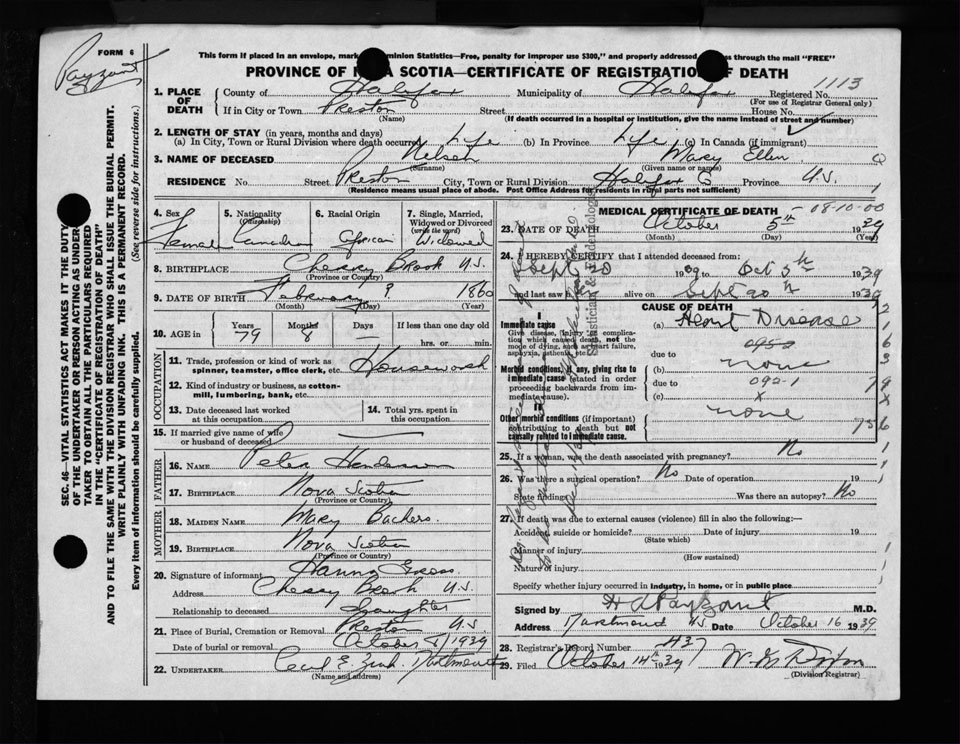 FORM 6
Payzant
This form if placed in an envelope, marked Dominion Statistics—Free, penalty for improper use $300," and properly addressed, passes through the mail "FREE"
PROVINCE OF NOVA SCOTIA—CERTIFICATE OF REGISTRATION OF DEATH
Registered No. 1113
(For use of Registrar General only)
1. PLACE OF DEATH County of Halifax Municipality of Halifax
If in City or Town Preston Street House No.
(Name) (If death occurred in a hospital or institution, give the name instead of street and number)
2. LENGTH OF STAY (in years, months and days)
(a) In City, Town or Rural Division where death occurred Life (b) In Province Life (c) In Canada (if immigrant)
3. NAME OF DECEASED Nelson Mary Ellen
(Surname) (Given name or names)
RESIDENCE No. Street Preston City, Town or Rural Division Halifax Co Province N.S.
(Residence means usual place of abode. Post Office Address for residents in rural parts not sufficient)
4. Sex Female
5. Nationality (Citizenship) Canadian
6. Racial Origin African
7. Single, Married, Widowed or Divorced (write the word) Widowed
8. BIRTHPLACE Cherry Brook N.S.
(Province or Country)
9. DATE OF BIRTH February ? 1860
(Month) (Day) (Year)
10. AGE in Years 79 Months 8 Days — If less than one day old
hrs. or min.
OCCUPATION
11. Trade, profession or kind of work as spinner, teamster, office clerk, etc. Housework
12. Kind of industry or business, as cotton-mill, lumbering, bank, etc.
13. Date deceased last worked at this occupation
14. Total yrs. spent in this occupation
15. If married give name of wife or husband of deceased —
FATHER
16. NAME Peter Henderson
17. BIRTHPLACE Nova Scotia
(Province or Country)
MOTHER
18. MAIDEN NAME Mary
19. BIRTHPLACE Nova Scotia
(Province or Country)
20. Signature of informant Hanna
Address Cherry Brook N.S.
Relationship to deceased Daughter
21. Place of Burial, Cremation or Removal Preston N.S.
Date of burial or removal October 1939
22. UNDERTAKER Cecil E. Zink Dartmouth
(Name and address)
MEDICAL CERTIFICATE OF DEATH - 08-10-00
23. DATE OF DEATH October 5th 1939
(Month) (Day) (Year)
24. I HEREBY CERTIFY that I attended deceased from:
Sept 20 1939 to Oct 5th 1939
and last saw h alive on Sept 20th 1939
CAUSE OF DEATH
I
Immediate cause
Give disease, injury or complication which caused death, not the mode of dying, such as heart failure, asphyxia, asthenia, etc.
(a) Heart Disease
0953
due to
Morbid conditions, if any, giving rise to immediate cause (stated in order proceeding backwards from immediate cause).
(b) none
due to 092-1
(c) x
II
Other morbid conditions (if important) contributing to death but not causally related to immediate cause.
none
156
25. If a woman, was the death associated with pregnancy? No
26. Was there a surgical operation? No Date of operation 19
State findings Was there an autopsy? No
27. If death was due to external causes (violence) fill in also the following:—
Accident, suicide or homicide? Date of injury 19
(State which)
Manner of injury
(How sustained)
Nature of injury
Specify whether injury occurred in industry, in home, or in public place
Signed by H A Payzant M.D.
Address Dartmouth NS Date October 16 1939
28. Registrar's Record Number 437
29. Filed October 14th 1939
(Division Registrar)
SEC. 46—VITAL STATISTICS ACT MAKES IT THE DUTY
OF THE UNDERTAKER OR PERSON ACTING AS UNDERTAKER TO OBTAIN ALL THE PARTICULARS REQUIRED
IN THE "CERTIFICATE OF REGISTRATION OF DEATH"
AND TO FILE THE SAME WITH THE DIVISION REGISTRAR WHO SHALL ISSUE THE BURIAL PERMIT.
WRITE PLAINLY WITH UNFADING INK. THIS IS A PERMANENT RECORD.
Every item of information should be carefully supplied. (See reverse side for instructions.)